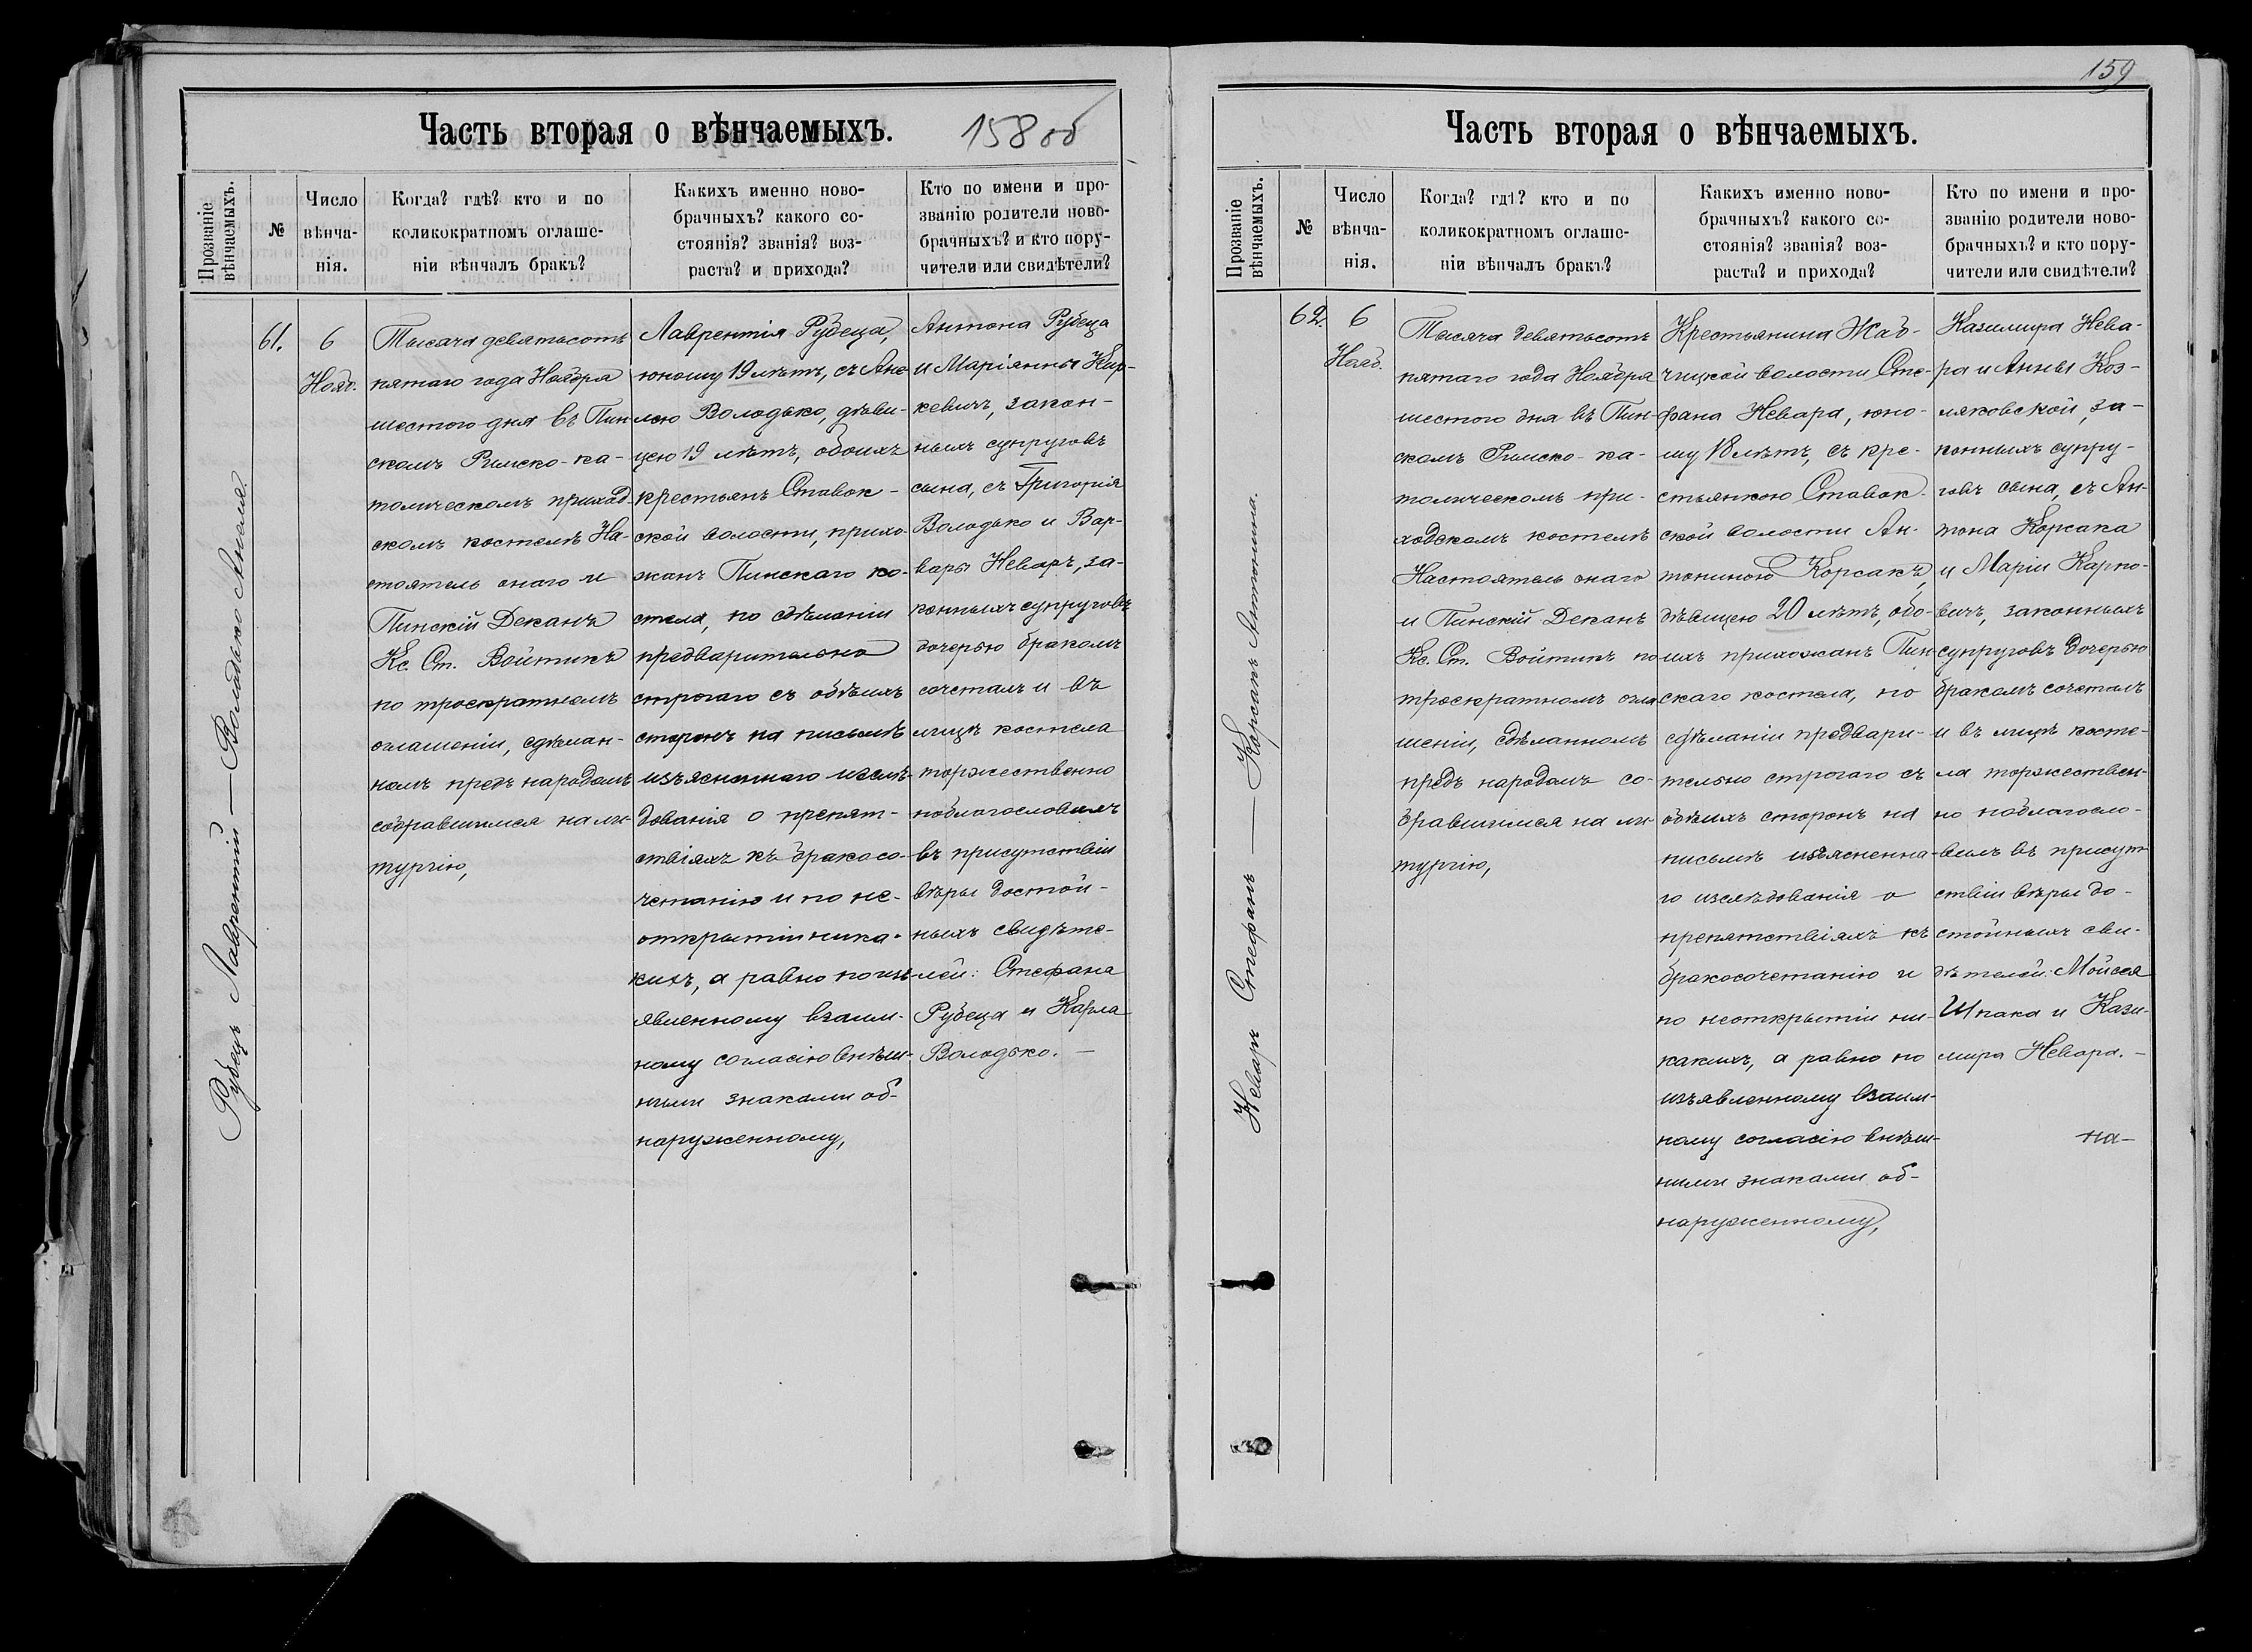 Часть вторая о вѣнчаемыхъ.
158 об
Прозваніе вѣнчаемыхъ.
№
Число вѣнча-
нія.
Когда? гдѣ? кто и по
коликократномъ оглаше-
ніи вѣнчалъ бракъ?
Какихъ именно ново-
брачныхъ? какого со-
стоянія? званія? воз-
раста? и прихода?
Кто по имени и про-
званію родители ново-
брачныхъ? и кто пору-
чители или свидѣтели?
Рубецъ Лаврентій — Володько Анеля.
61.
6
Нояб.
Тысяча девятьсотъ
пятаго года Ноября
шестого дня въ Пин-
скомъ Римско-ка-
толическомъ приход-
скомъ костелѣ На-
стоятель онаго и
Пинскій Деканъ
Кс. Ст. Войтикъ
по троекратномъ
оглашеніи, сдѣлан-
номъ предъ народомъ
собравшимся на ли-
тургію,
Лаврентія Рубеца,
юношу 19 лѣтъ, съ Ане-
лею Володько, дѣви-
цею 19 лѣтъ, обоихъ
крестьянъ Ставок-
ской волости, прихо-
жанъ Пинскаго ко-
стела, по сдѣланіи
предварительно
строгаго съ обѣихъ
сторонъ на письмѣ
изъясненнаго изслѣ-
дованія о препят-
ствіяхъ къ бракосо-
четанію и по не-
открытіи ника-
кихъ, а равно по изъ-
явленному взаим-
ному согласію внѣш-
ними знаками об-
наруженному,
Антона Рубеца
и Маріянны Кир-
кевичъ, закон-
ныхъ супруговъ
сына, съ Григорія
Володько и Вар-
вары Неваръ, за-
конныхъ супруговъ
дочерью бракомъ
сочеталъ и въ
лицѣ костела
торжественно
поблагословилъ
въ присутствіи
вѣры достой-
ныхъ свидѣте-
лей: Стефана
Рубеца и Карла
Володько. —
159
Часть вторая о вѣнчаемыхъ.
Прозваніе вѣнчаемыхъ.
№
Число
вѣнча-
нія.
Когда? гдѣ? кто и по
коликократномъ оглаше-
ніи вѣнчалъ бракъ?
Какихъ именно ново-
брачныхъ? какого со-
стоянія? званія? воз-
раста? и прихода?
Кто по имени и про-
званію родители ново-
брачныхъ? и кто пору-
чители или свидѣтели?
Неваръ Стефанъ — Корсакъ Антонина.
62.
6
Нояб.
Тысяча девятьсотъ
пятаго года Ноября
шестого дня въ Пин-
скомъ Римско-ка-
толическомъ при-
ходскомъ костелѣ
Настоятель онаго
и Пинскій Деканъ
Кс. Ст. Войтикъ по
троекратномъ огла-
шеніи, сдѣланномъ
предъ народомъ со-
бравшимся на ли-
тургію,
Крестьянина Жаб-
чицкой волости Сте-
фана Невара, юно-
шу 18 лѣтъ, съ кре-
стьянкою Ставок-
ской волости Ан-
тониною Корсакъ,
дѣвицею 20 лѣтъ, обо-
ихъ прихожанъ Пин-
скаго костела, по
сдѣланіи предвари-
тельно строгаго съ
обѣихъ сторонъ на
письмѣ изъясненна-
го изслѣдованія о
препятствіяхъ къ
бракосочетанію и
по неоткрытіи ни-
какихъ, а равно по
изъявленному взаим-
ному согласію внѣш-
ними знаками об-
наруженному,
Казимира Нева-
ра и Анны Коз-
ляковской, за-
конныхъ супру-
говъ сына, съ Ан-
тона Корсака
и Маріи Карпо-
вичъ, законныхъ
супруговъ дочерью
бракомъ сочеталъ
и въ лицѣ косте-
ла торжествен-
но поблагосло-
вилъ въ присут-
ствіи вѣры до-
стойныхъ сви-
дѣтелей: Мойсея
Шпака и Кази-
мира Невара. —
на-